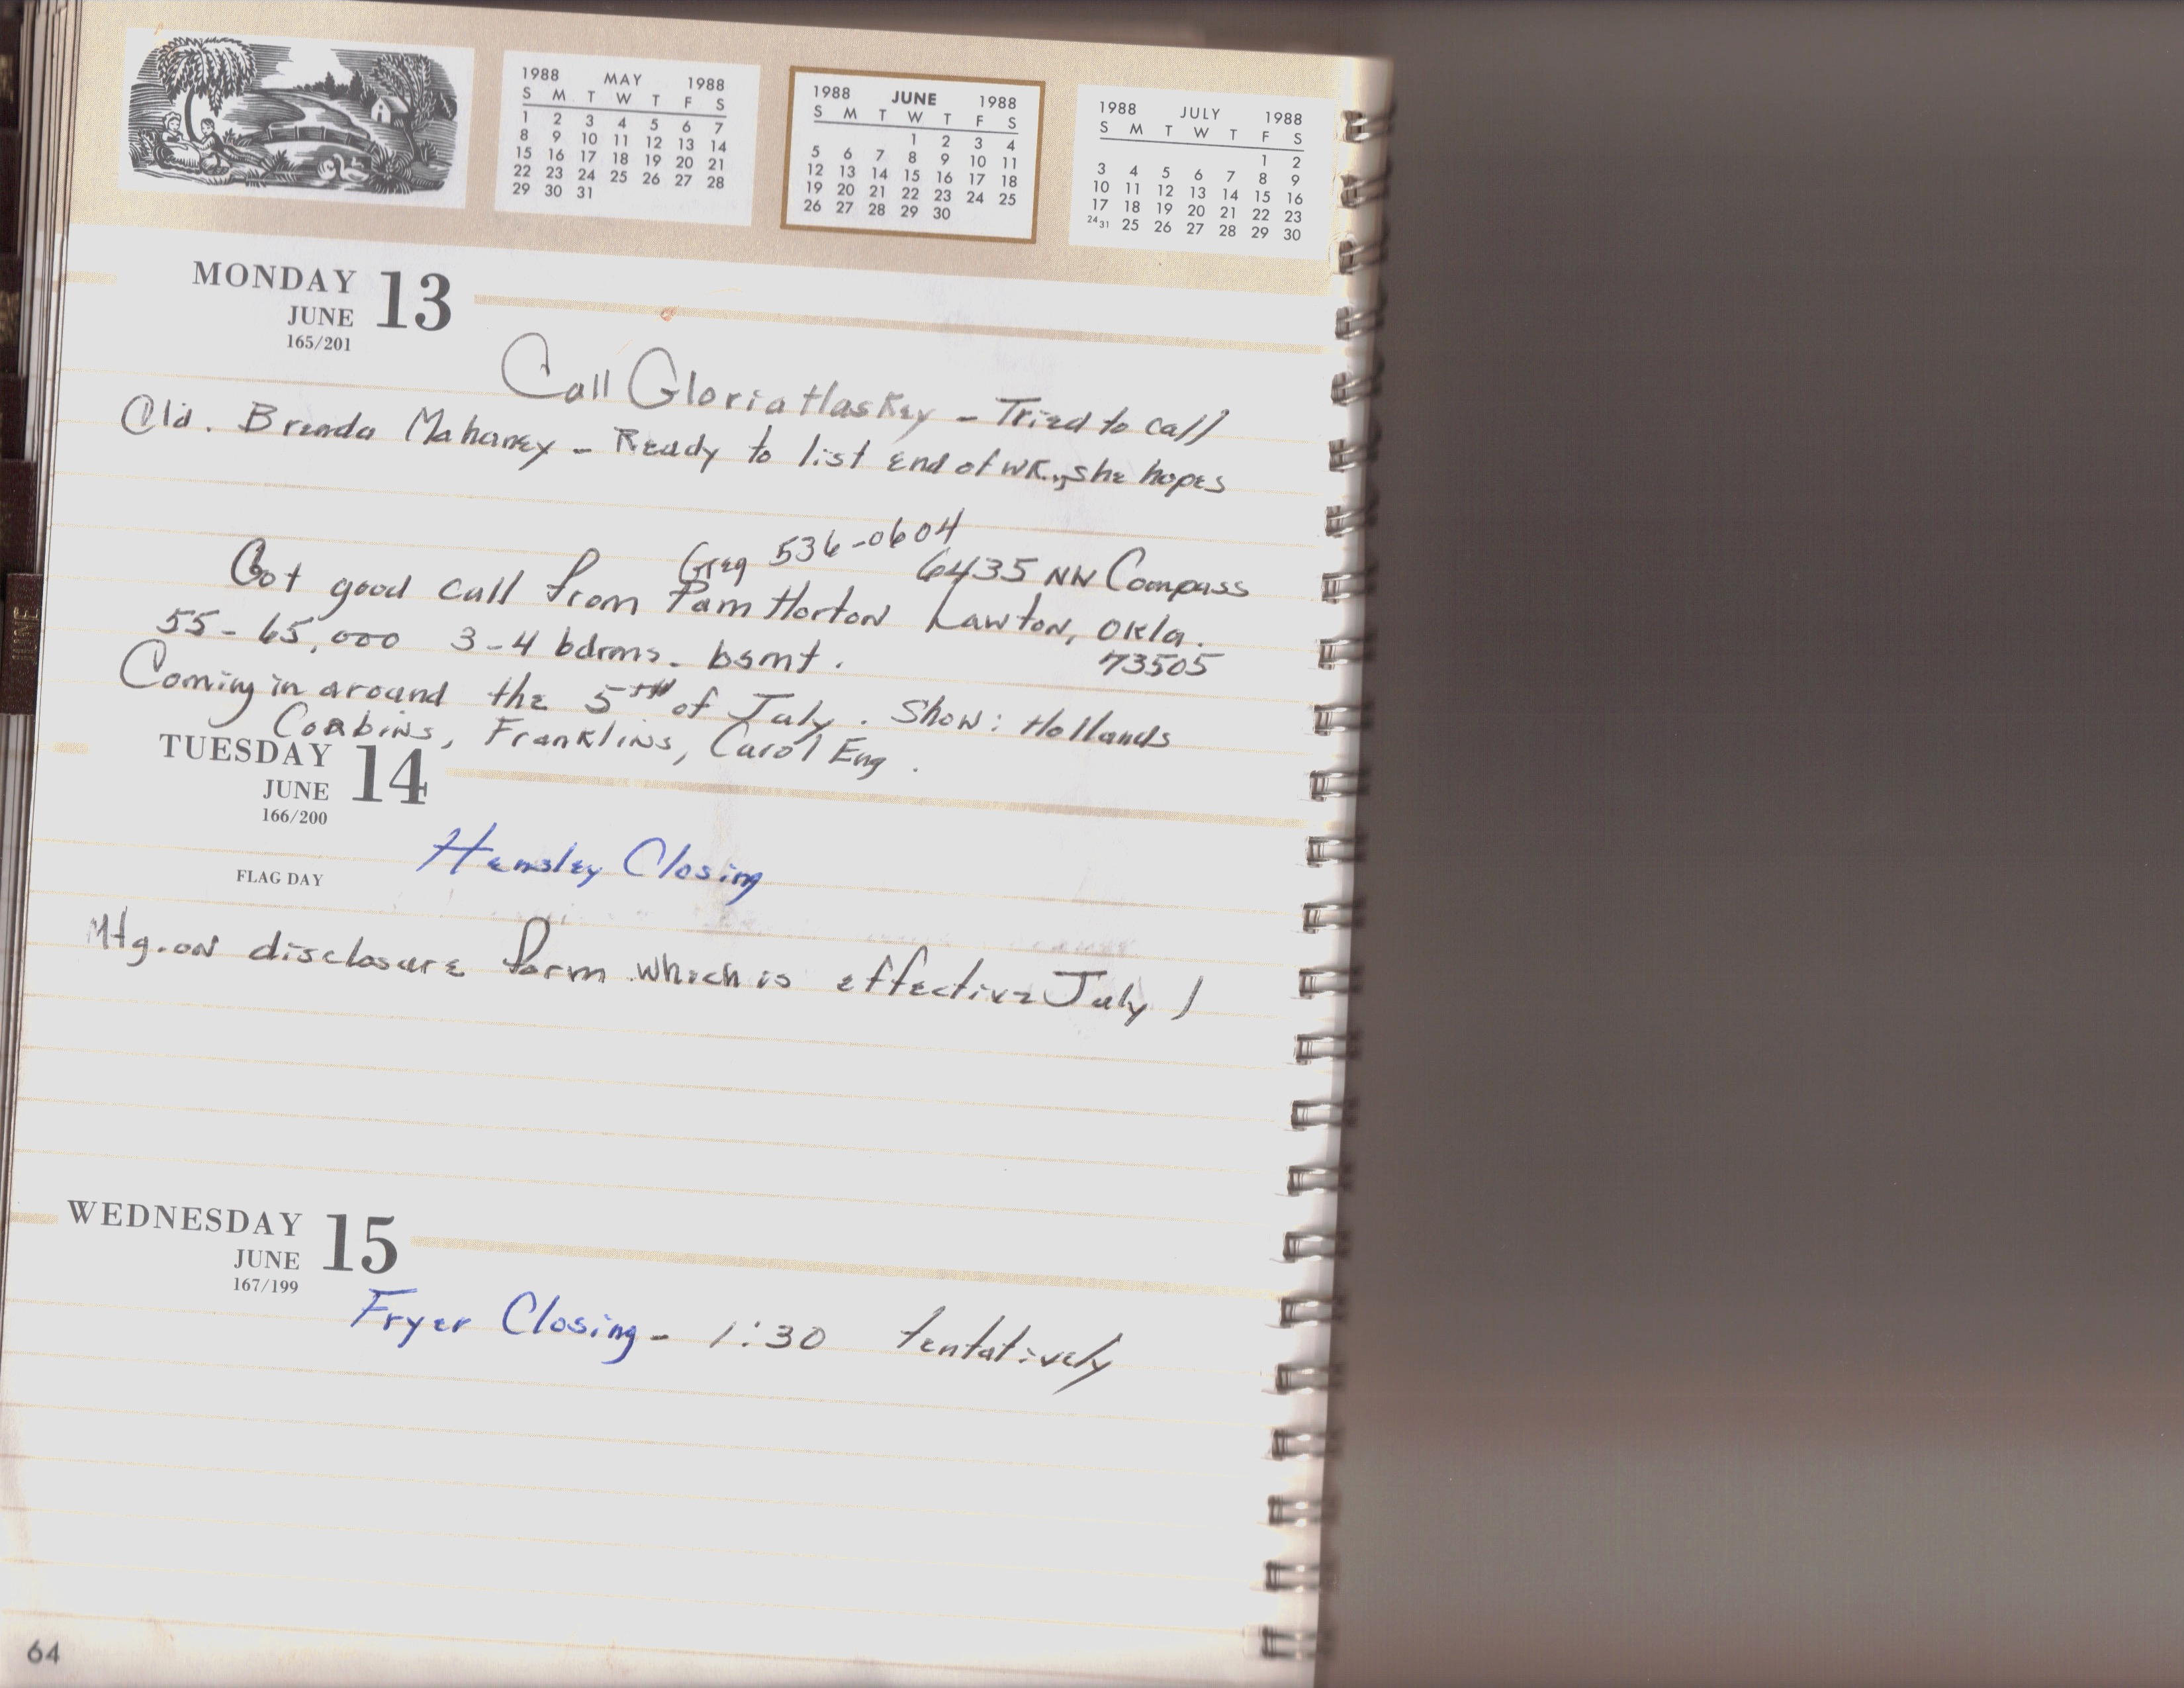 1988 MAY 1988
S M T W T F S
1 2 3 4 5 6 7
8 9 10 11 12 13 14
15 16 17 18 19 20 21
22 23 24 25 26 27 28
29 30 31
1988 JUNE 1988
S M T W T F S
1 2 3 4
5 6 7 8 9 10 11
12 13 14 15 16 17 18
19 20 21 22 23 24 25
26 27 28 29 30
1988 JULY 1988
S M T W T F S
1 2
3 4 5 6 7 8 9
10 11 12 13 14 15 16
17 18 19 20 21 22 23
24 31 25 26 27 28 29 30
MONDAY 13
JUNE
165/201
Call Gloria Haskey - Tried to call
Cld. Brenda Mahaney - Ready to list end of wk., she hopes
Greg 536-0604
6435 NW Compass
Got good call from Pam Horton Lawton, Okla.
73505
55-65,000 3-4 bdrms. bsmt.
Coming in around the 5TH of July. Show: Hollands
Corbins, Franklins, Carol Eng.
TUESDAY 14
JUNE
166/200
FLAG DAY
Hensley Closing
Mtg. on disclosure form which is effective July 1
WEDNESDAY 15
JUNE
167/199
Fryer Closing - 1:30 tentatively
64
JUNE